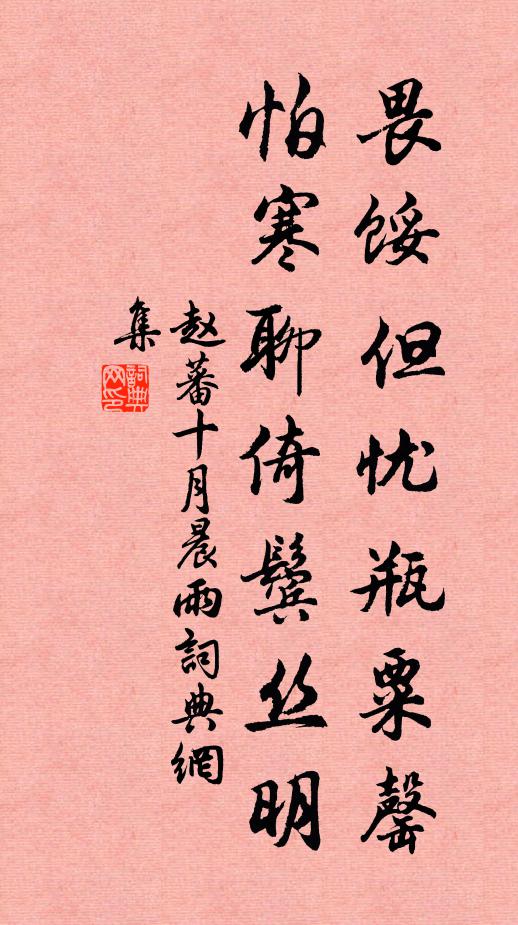 畏馁但忧瓶粟罄
怕寒聊倚鬓丝明
赵蕃十月晨雨詞典網
集
詞典
网印